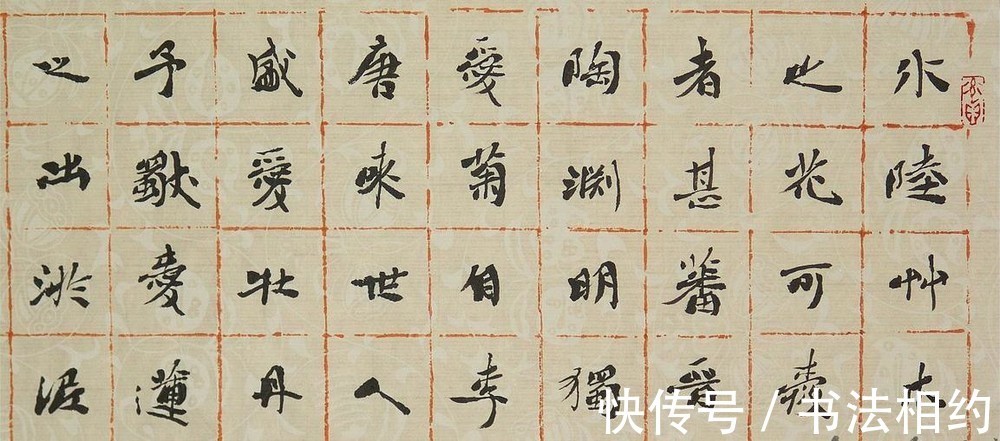 水陸艸木
之花可愛
者甚蕃晉
陶淵明獨
愛菊自李
唐來世人
盛愛牡丹
予獨愛蓮
之出淤泥
快传号 / 书法相约